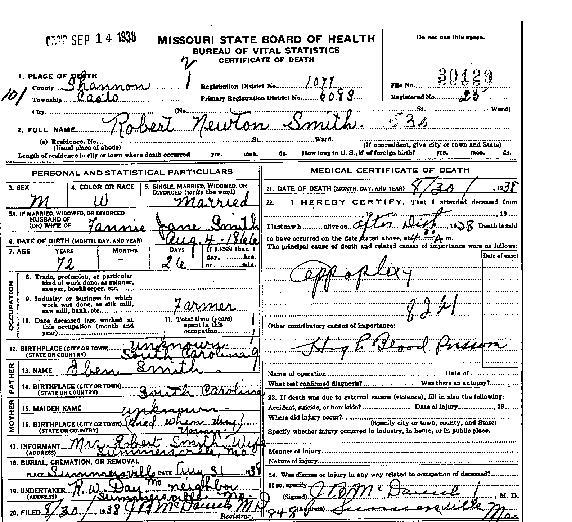 SEP 14 1938
MISSOURI STATE BOARD OF HEALTH
Do not use this space.
BUREAU OF VITAL STATISTICS
CERTIFICATE OF DEATH
1. PLACE OF DEATH
County Shannon Registration District No. 1099 File No. 30429
Township Primary Registration District No. 6093 Registered No. 25
City (No. St. Ward)
2. FULL NAME Robert Newton Smith 530
(a) Residence, No. St. Ward.
(Usual place of abode) (If nonresident, give city or town and State)
Length of residence in city or town where death occurred yrs. mos. ds. How long in U. S., if of foreign birth? yrs. mos. ds.
PERSONAL AND STATISTICAL PARTICULARS
3. SEX M
4. COLOR OR RACE W
5. SINGLE, MARRIED, WIDOWED, OR DIVORCED (write the word) Married
5A. IF MARRIED, WIDOWED, OR DIVORCED
HUSBAND OF
(OR) WIFE OF Fannie Jane Smith
6. DATE OF BIRTH (MONTH, DAY, AND YEAR) Aug. 4 - 1866
7. AGE YEARS 72 MONTHS - DAYS 26 If LESS than 1 day, hrs. or min.
OCCUPATION
8. Trade, profession, or particular kind of work done, as spinner, sawyer, bookkeeper, etc.
9. Industry or business in which work was done, as silk mill, saw mill, bank, etc. Farmer
10. Date deceased last worked at this occupation (month and year)
11. Total time (years) spent in this occupation
12. BIRTHPLACE (CITY OR TOWN) unknown
(STATE OR COUNTRY) South Carolina
FATHER
13. NAME Eben Smith
14. BIRTHPLACE (CITY OR TOWN)
(STATE OR COUNTRY) South Carolina
MOTHER
15. MAIDEN NAME unknown
16. BIRTHPLACE (CITY OR TOWN)
(STATE OR COUNTRY)
17. INFORMANT Mrs. Robert Smith Wife
(ADDRESS) Summersville, Mo.
18. BURIAL, CREMATION, OR REMOVAL
PLACE Summersville DATE Aug 31 1938
19. UNDERTAKER R. W. Day neighbor
(ADDRESS) Summersville Mo
20. FILED 8/30/1938 J.B. McDaniel M.D.
Registrar
MEDICAL CERTIFICATE OF DEATH
21. DATE OF DEATH (MONTH, DAY, AND YEAR) 8/30/1938
22. I HEREBY CERTIFY, That I attended deceased from
, 19
I last saw h alive on after Death 1938 Death is said
to have occurred on the date stated above, at m.
The principal cause of death and related causes of importance were as follows:
Date of onset
Appoplexy
82A
Other contributory causes of importance:
High Blood
Name of operation Date of
What test confirmed diagnosis? Was there an autopsy?
23. If death was due to external causes (violence), fill in also the following:
Accident, suicide, or homicide? Date of injury , 19
Where did injury occur?
(Specify city or town, county, and State)
Specify whether injury occurred in industry, in home, or in public place.
Manner of injury
Nature of injury
24. Was disease or injury in any way related to occupation of deceased?
If so, specify
(Signed) J.B. McDaniel, M. D.
Summersville Mo